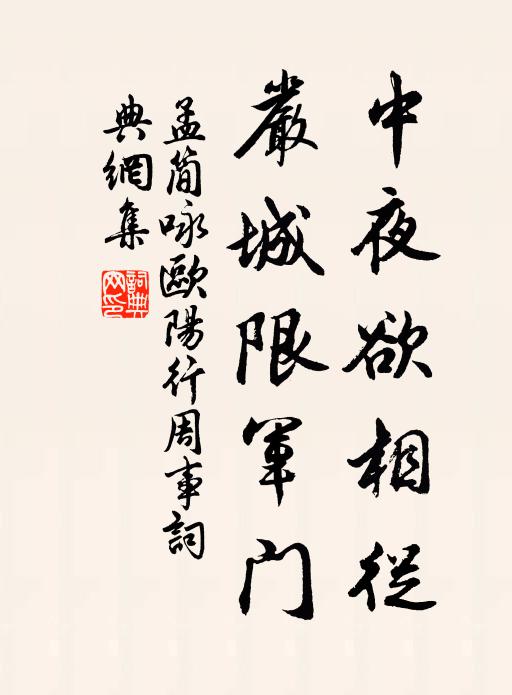 中夜欲相從
嚴城限軍門
孟簡咏歐陽行周事詞
典網集
詞典網印